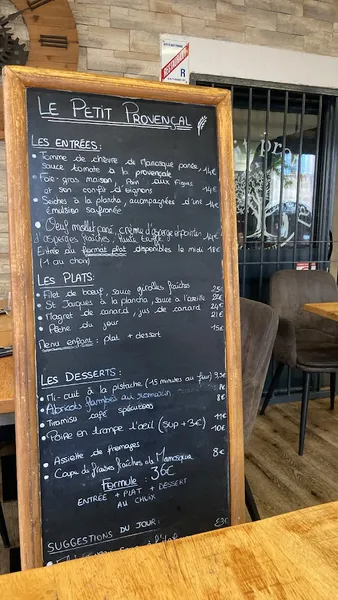 LE PETIT PROVENÇAL
LES ENTRÉES:
• Tomme de chèvre de Manosque panée, 14€
sauce tomate à la provençale
• Foie gras maison, Pain aux Figues
et son confit d'oignons 14€
• Seiches à la plancha, accompagnées d'une 14€
émulsion safranée
• Oeuf mollet pané, crème d'asperge et
d'asperges fraîches, tuile truffe 14€
Entrée au format plat disponibles le midi 18€
(1 au choix)
LES PLATS:
• Filet de boeuf, sauce girolles fraîches 25€
• St Jacques à la plancha, sauce à l'oseille 26€
• Magret de canard, jus de canard 24€
• Pêche du jour 21€
Menu enfant: plat + dessert 15€
LES DESSERTS:
• Mi-cuit à la pistache (15 minutes au four) 9,5€
• Abricots flambés au romarin 9€
• Tiramisu café spéculoos 8€
• Poire en trompe l'oeil (sup +3€) 11€
10€
• Assiette de fromages 8€
• Coupe de fraises fraîches de Manosque
Formule: 36€
ENTRÉE + PLAT + DESSERT
AU CHOIX
SUGGESTIONS DU JOUR: